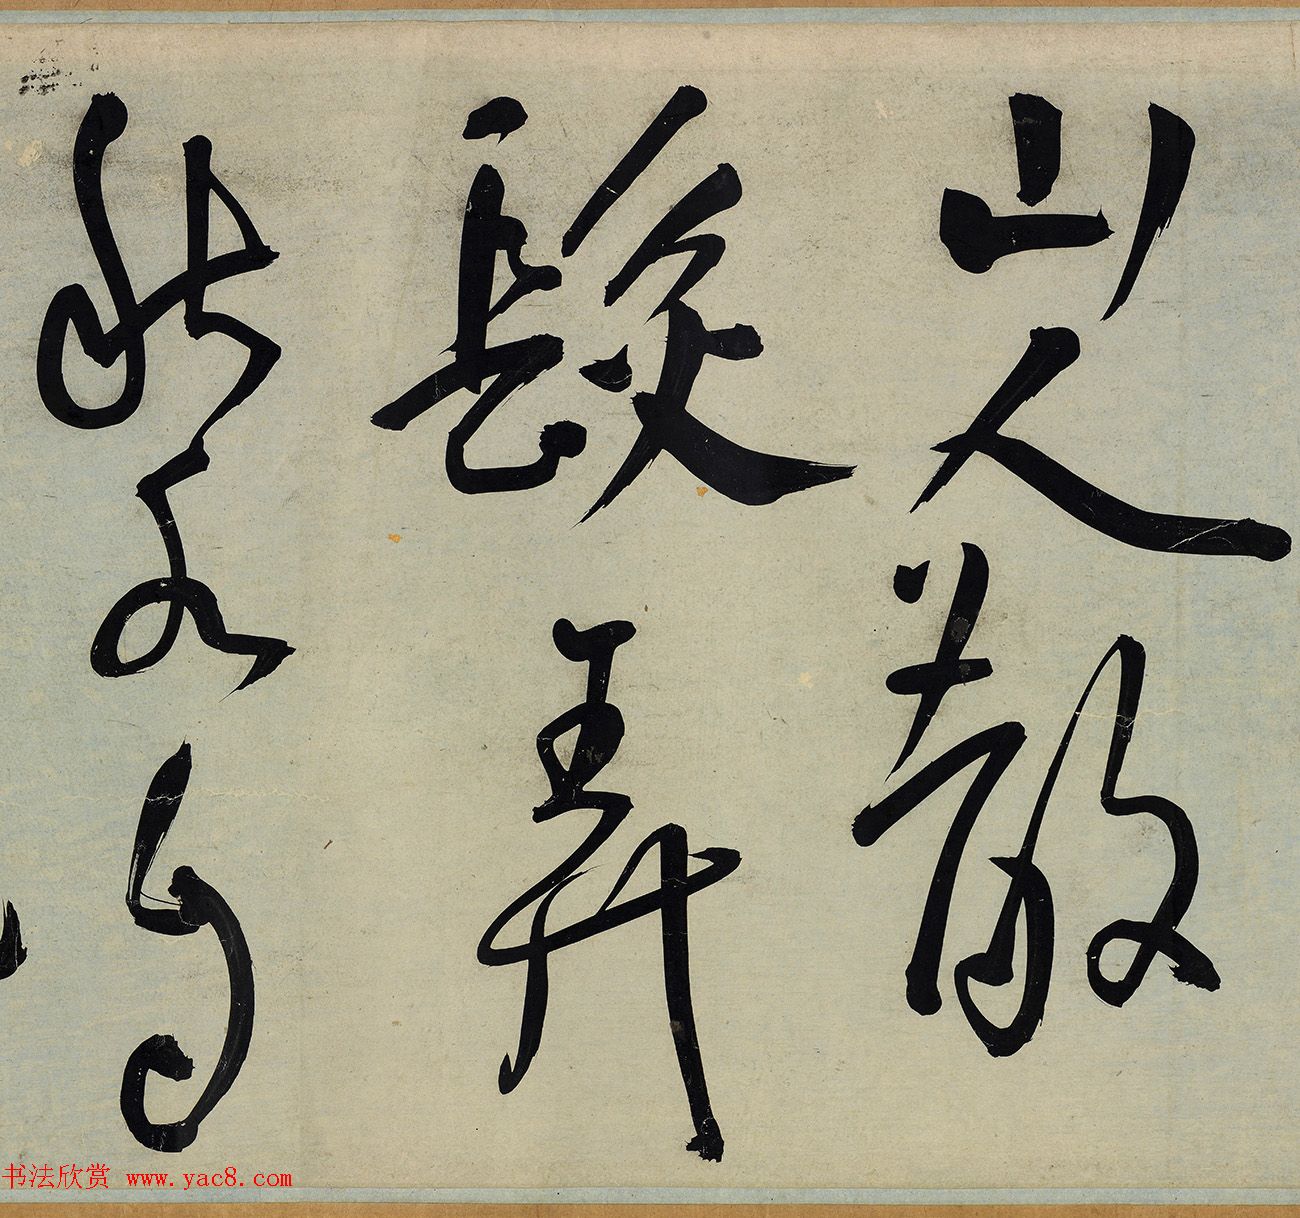 山人散
髮弄
紫
书法欣赏 www.yac8.com